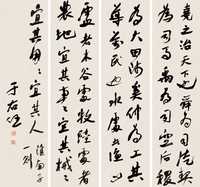 堯之治天下也舜為司徒契
為司馬禹為司空后稷
為大田師奚仲為工其
導萬民也水處者漁山
處者木谷處者牧陸處者
農地宜其事〻宜其械〻
宜其用〻宜其人
淮南子
一則
于右任